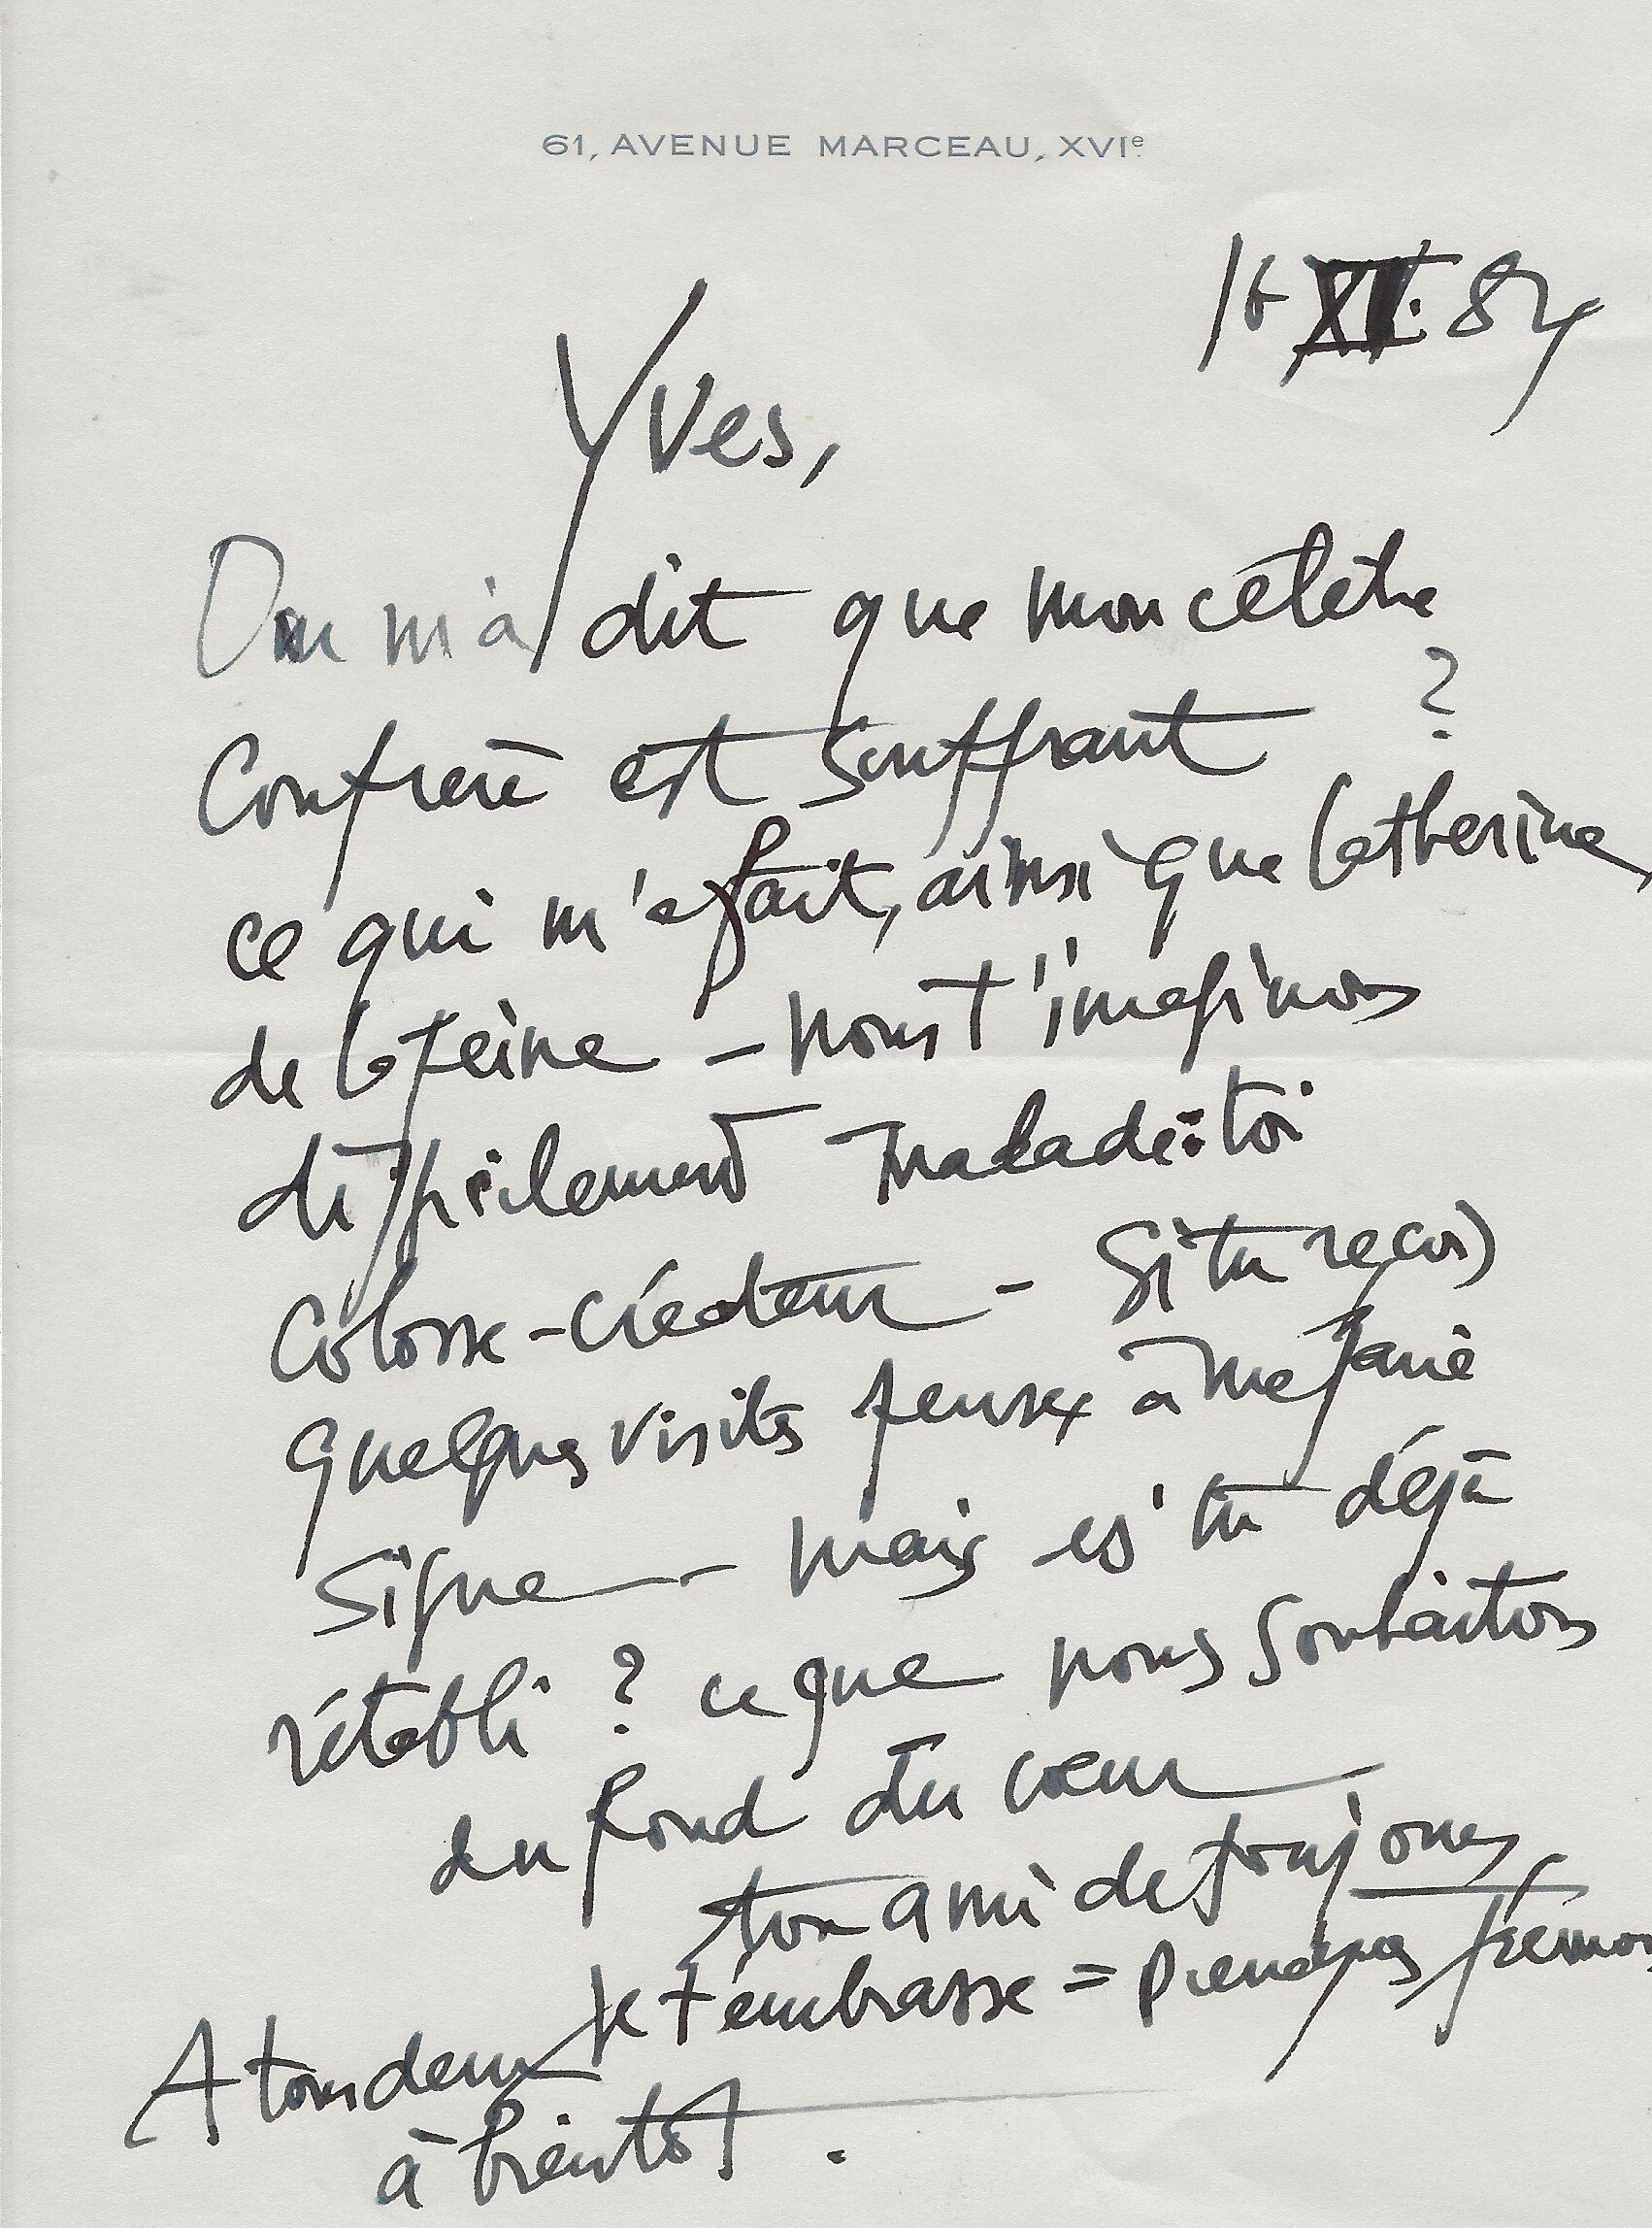 61, AVENUE MARCEAU, XVIe
16 84
Yves,
On m'a dit que mon célèbre
Confrère est souffrant ?
ce qui m'a fait, ainsi que Catherine,
de la peine – nous t'imaginons
difficilement malade: toi
Colosse-créateur – Si tu reçois
quelques visites penses à me faire
signe – mais es-tu déjà
rétabli ? ce que nous souhaitons
du fond du cœur
ton ami de toujours
je t'embrasse =
A tous deux
à bientôt .